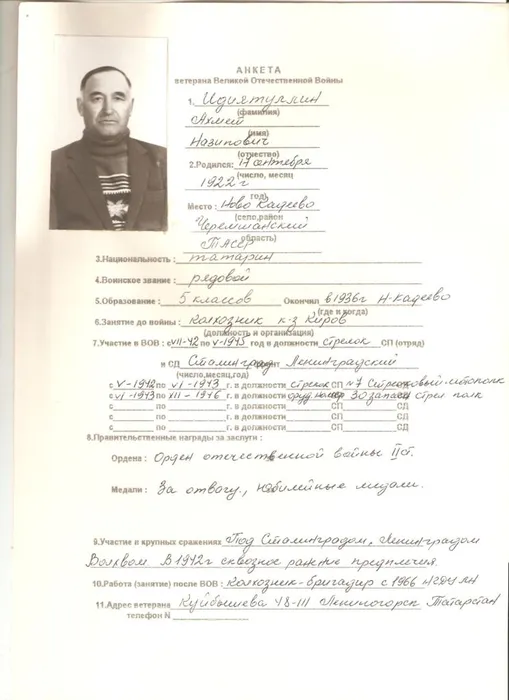 АНКЕТА
ветерана Великой Отечественной Войны
1. Идиятуллин
(фамилия)
Ахмет
(имя)
Назипович
(отчество)
2.Родился: 17 сентября
(число, месяц
1922г
год)
Место : Ново Кадеево
(село,район
Черемшанский
область)
ТАССР
3.Национальность : татарин
4.Воинское звание : рядовой
5.Образование : 5 классов Окончил в 1936г Н-Кадеево
(где и когда)
6.Занятие до войны : Колхозник к-з Киров
(должность и организация)
7.Участие в ВОВ : с VII-42 по V-1943 год в должности стрелок СП (отряд)
и СД Сталинград Ленинградский
(число,месяц,год)
с V-1942 по VI-1943 г. в должности стрелок СП №7 Стрелковый
с VI-1943 по XII-1946 г. в должности оруд. номер 30 запасн стрел полк
с по г. в должности СП СД
с по г. в должности СП СД
8.Правительственные награды за заслуги :
Ордена : Орден отечественной войны II ст.
Медали : За отвагу, Юбилейные медали.
9.Участие и крупных сражениях Под Сталинградом, Ленинградом
Волхвом. В 1942г сквозное ранние предплечия.
10.Работа (занятие) после ВОВ : Колхозник-бригадир с 1966
11.Адрес ветерана Куйбышева 48-111 Лениногорск Татарстан
телефон N